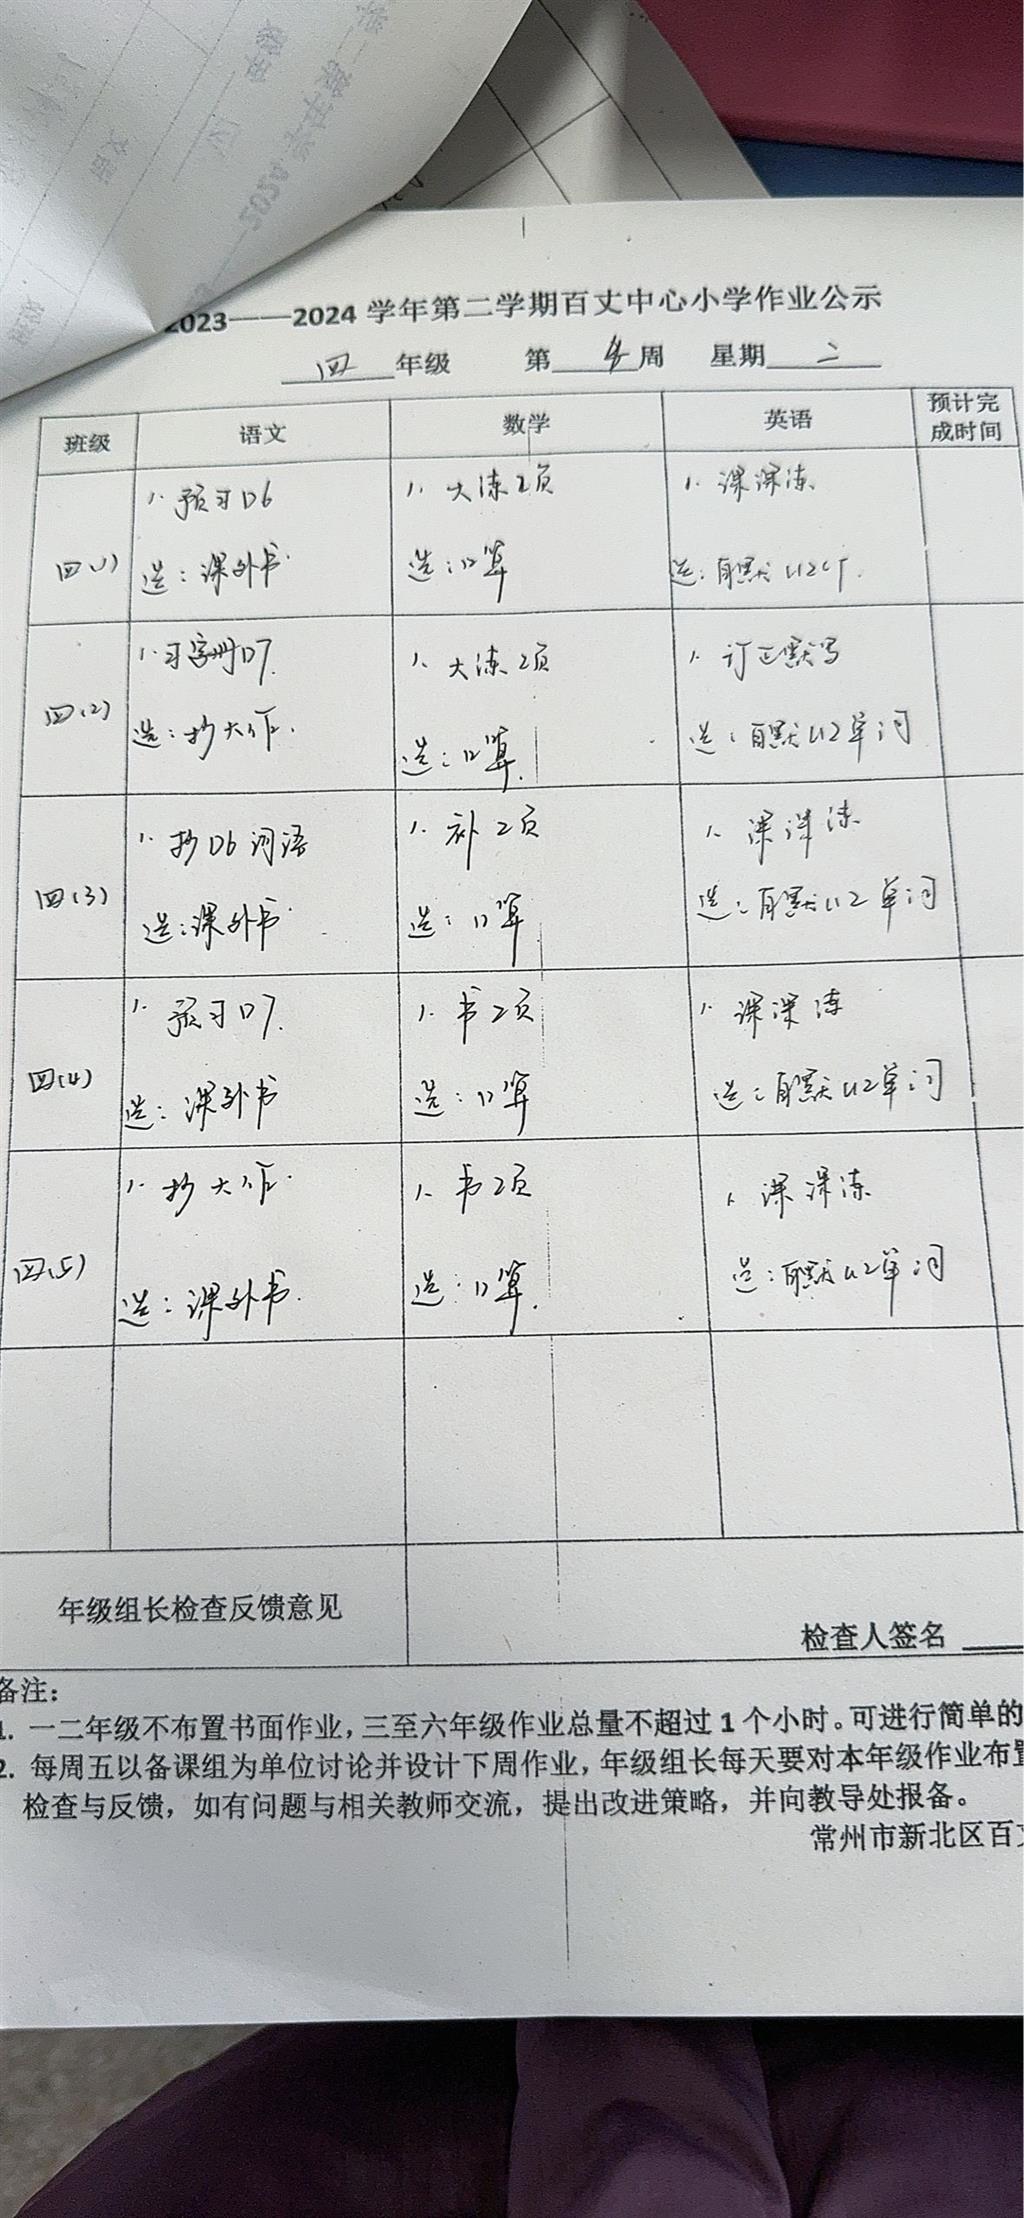 2023——2024 学年第二学期百丈中心小学作业公示
四 年级 第 周 星期 二
班级 语文 数学 英语 预计完成时间
四(1)
1. 预习D6
选：课外书
1. 大练2页
选：口算
1. 课课练
选：自默U2
四(2)
1. 习字册D7.
选：抄大作.
1. 大练2页
选：口算.
1. 订正默写
选：自默U2单词
四(3)
1. 抄D6词语
选：课外书
1. 补2页
选：口算
1. 课课练
选：自默U2单词
四(4)
1. 预习D7.
选：课外书
1. 书2页
选：口算
1. 课课练
选：自默U2单词
四(5)
1. 抄大作.
选：课外书.
1. 书2页
选：口算.
1. 课课练
选：自默U2单词
年级组长检查反馈意见
检查人签名
备注：
1. 一二年级不布置书面作业，三至六年级作业总量不超过 1 个小时。可进行简单的
2. 每周五以备课组为单位讨论并设计下周作业，年级组长每天要对本年级作业布置
检查与反馈，如有问题与相关教师交流，提出改进策略，并向教导处报备。
常州市新北区百丈